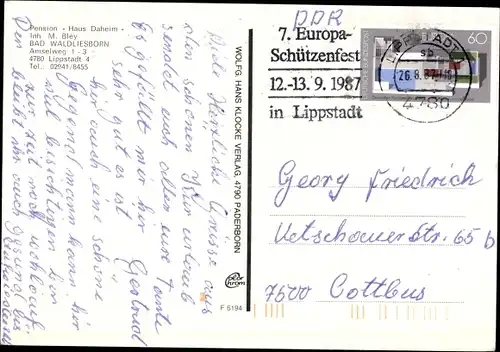 Pension · Haus Daheim ·
Inh. M. Bley
BAD WALDLIESBORN
Amselweg 1 - 3
4780 Lippstadt 4
Tel.: 02941/8455
Viele Herzliche Grüsse aus
den schönen Kururlaub
sendet euch allen eure Tante
Es gefällt mir hir Gertrud
sehr gut es ist
hir auch eine schöne
Gegend man kann hir
viel besichtigen bin
zur Zeit noch
bleibt ihr auch gesund bis
WOLFG. HANS KLOCKE VERLAG, 4790 PADERBORN
F 6194
DDR
7. Europa-
Schützenfest
12.-13. 9. 1987
in Lippstadt
LIPPSTADT
sb
26.8.87
4780
60
Georg Friedrich
Uetschouer Str. 65 b
7500 Cottbus